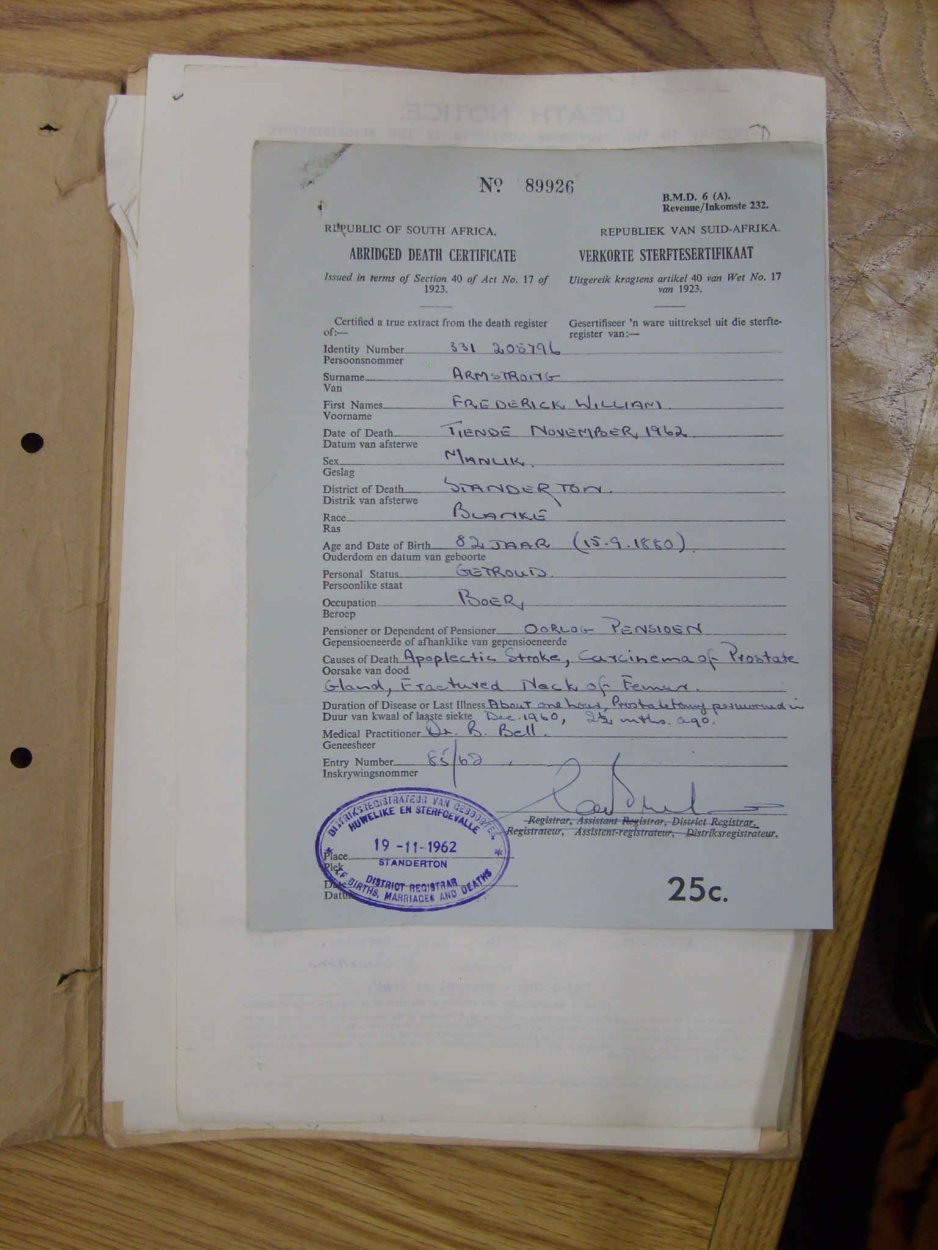 DEATH NOTICE
Nº 89926
B.M.D. 6 (A).
Revenue/Inkomste 232.
REPUBLIC OF SOUTH AFRICA.
REPUBLIEK VAN SUID-AFRIKA.
ABRIDGED DEATH CERTIFICATE
VERKORTE STERFTESERTIFIKAAT
Issued in terms of Section 40 of Act No. 17 of
1923.
Uitgereik kragtens artikel 40 van Wet No. 17
van 1923.
Certified a true extract from the death register
of:—
Gesertifiseer 'n ware uittreksel uit die sterfte-
register van:—
Identity Number 331 208796
Persoonsnommer
Surname ARMSTRONG
Van
First Names FREDERICK WILLIAM.
Voorname
Date of Death TIENDE NOVEMBER, 1962
Datum van afsterwe
Sex MANLIK.
Geslag
District of Death STANDERTON.
Distrik van afsterwe
Race BLANKE
Ras
Age and Date of Birth 82 JAAR (15.9.1880)
Ouderdom en datum van geboorte
Personal Status GETROUD.
Persoonlike staat
Occupation BOER,
Beroep
Pensioner or Dependent of Pensioner OORLOG PENSIOEN
Gepensioeneerde of afhanklike van gepensioeneerde
Causes of Death Apoplectic Stroke, Carcinema of Prostate
Oorsake van dood
Gland, Fractured Neck of Femur.
Duration of Disease or Last Illness About one hour, Prostatectomy performed in
Duur van kwaal of laaste siekte Dec. 1960, 2½ mths. ago.
Medical Practitioner Dr. B. Bell.
Geneesheer
Entry Number 85/62
Inskrywingsnommer
Registrar, Assistant Registrar, District Registrar.
Registrateur, Assistent-registrateur, Distriksregistrateur.
DISTRIKSREGISTRATEUR VAN GEBOORTEN
HUWELIKE EN STERFGEVALLE
19 -11- 1962
STANDERTON
DISTRICT REGISTRAR
OF BIRTHS, MARRIAGES AND DEATHS
Place
Plek
Date
Datum
25c.